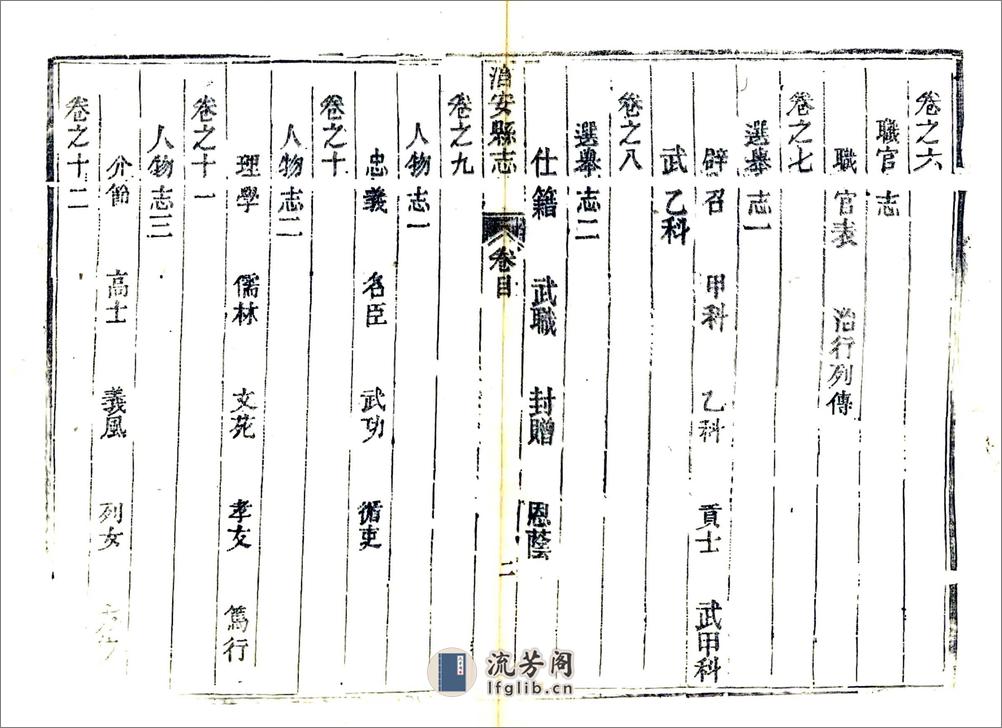 卷之六
職官志
職官表 治行列傳
卷之七
選舉志一
辟召 甲科 乙科 貢士 武甲科
武乙科
卷之八
選舉志二
仕籍 武職 封贈 恩蔭
治安縣志 卷目 二
卷之九
人物志一
忠義 名臣 武功 循吏
卷之十
人物志二
理學 儒林 文苑 孝友 篤行
卷之十一
人物志三
介節 高士 義風 列女
卷之十二
流芳阁
lfglib.cn